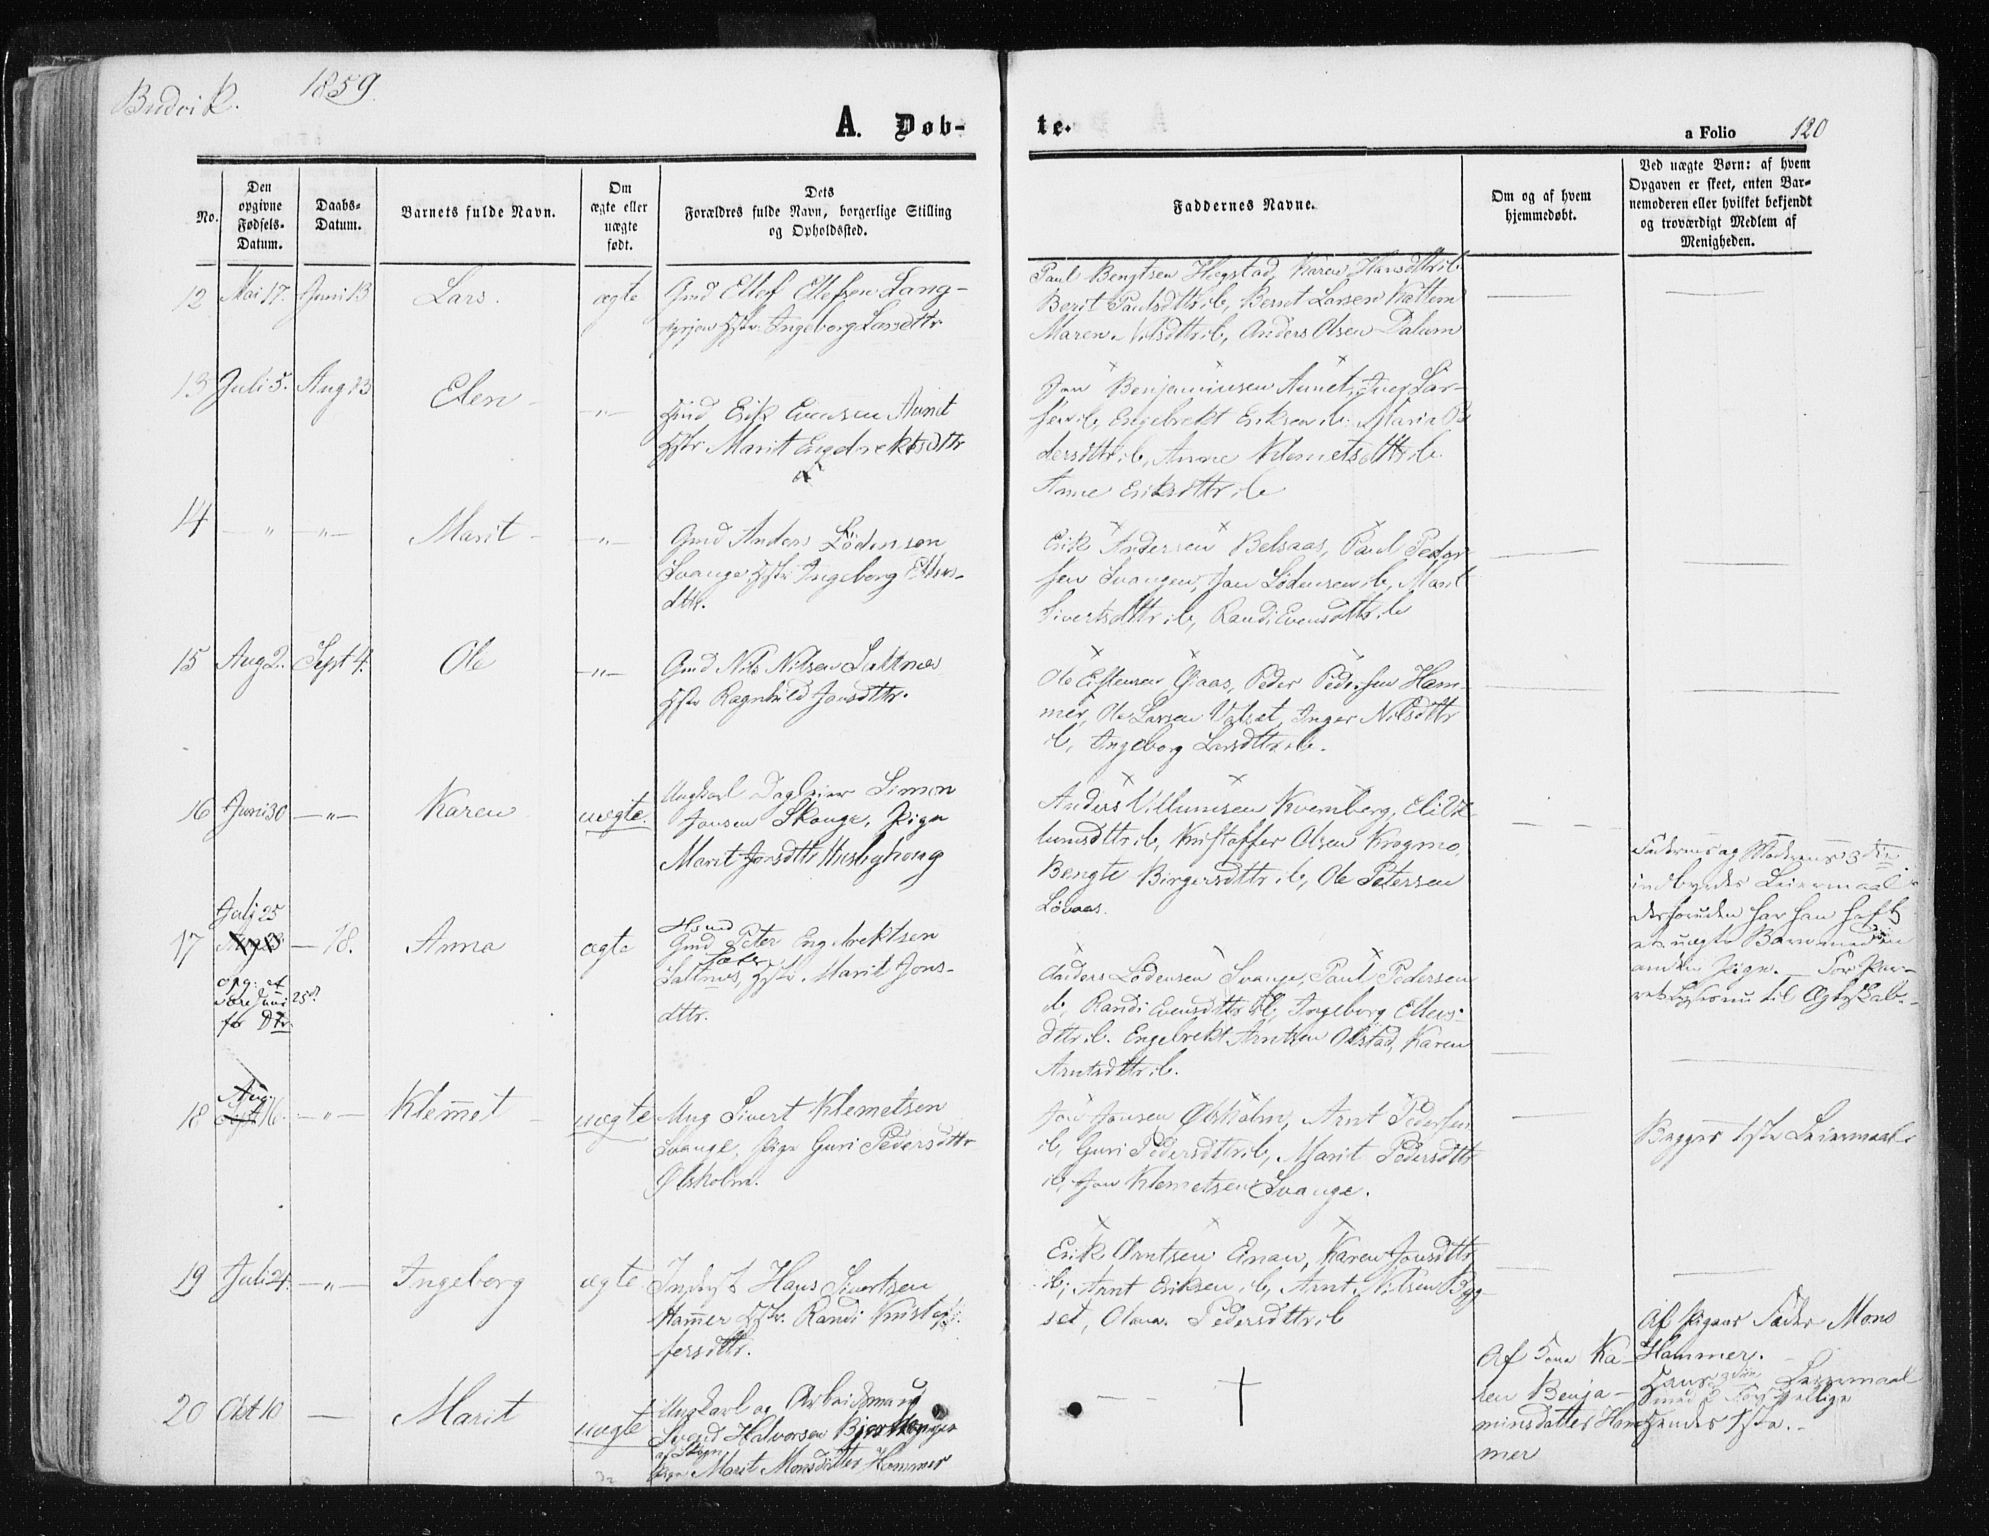 Budvik. 1859.
A. Døb-
te.
a Folio 120
No.
Den
opgivne
Fødsels-
Datum.
Daabs-
Datum.
Barnets fulde Navn.
Om
ægte eller
uægte
født.
Dets
Forældres fulde Navn, borgerlige Stilling
og Opholdssted.
Faddernes Navne.
Om og af hvem
hjemmedøbt.
Ved uægte Børn: af hvem
Opgaven er skeet, enten Bar-
nemoderen eller hvilket bekjendt
og troværdigt Medlem af
Menigheden.
12 Mai 17. Juni 13 Lars. ægte
Gmd Ellef Ellefsen Lang-
Hstr. Ingeborg Larsdttr
Paul Bengtsen Hegstad, Karen Hansdttr ib
Berit Paulsdttr ib, Bernt Larsen Kattem
Maren Nilsdttr ib, Anders Olsen Dalum
13 Juli 5. Aug 13 Elen - -"-
Erik Evensen Aunet
Hstr Marit Engebrektsdttr
Jon Benjaminsen Aunet, Iver Lar-
sen ib, Engebrekt Eriksen ib, Maria Pe
dersdttr ib, Anne Klemetsdttr ib
Anne Eriksdttr ib
14 -"- -"- Marit - -"-
Gmd Anders Lødensen
Svange Hstr Ingeborg Ellevs-
dttr.
Erik Andersen Belsaas, Paul Peder-
sen Svangen, Jon Lødensen ib, Marit
Sivertsdttr ib, Randi Evensdttr ib
15 Aug 2. Sept 4. Ole -"-
Gmd Nils Nilsen Saltnes
Hstr Ragnhild Jonsdttr.
Ole Estensen Øaas, Peder Pedersen Ham-
mer, Ole Larsen Valset, Inger Nilsdttr
ib, Ingeborg Larsdttr ib.
16 Juni 30 -"- Karen uægte.
Ungkarl Dagleier Simon
Jonsen Skauge, Pige
Marit Jonsdttr Husbyhoug
Anders Villumsen Kvernberg, Eli Vil
lumsdttr ib, Kristoffer Olsen Krogmo,
Bengte Birgersdttr ib, Ole Petersen
Løvaas.
Faderens og Moderens 3die
indbyrdes Leiermaal.
desforuden har han haft
et uægte Barn med en
anden Pige. - For Par-
ret lyses nu til Ægteskab.
17 Juli 25 - 18. Anna ægte
opg. at
være Juni 25de
før
Gmd Peter Engebrektsen
Saltnes, Hstr. Marit Jons-
dttr.
Anders Lødensen Svange, Paul Pedersen
ib, Randi Evensdttr ib, Ingeborg Ellevs-
dttr ib. Engebrekt Arntsen Olstad, Karen
Arntsdttr ib.
18 Aug. 16. -"- Klemet - uægte
Ung. Sivert Klemetsen
Svange, Pige Guri Pedersdttr
Øbskolm.
Jon Jonsen Øbskolm, Arnt Pedersen
ib, Guri Pedersdttr ib, Marit Pedersdttr
ib, Jon Klemetsen Svange.
Begges 1ste Leiermaal.
19 Juli 24. -"- Ingeborg ægte
Inderst Hans Sivertsen
Hammer Hstr. Randi Kristof-
fersdttr.
Erik Arntsen Enan, Karen Jonsdttr
ib, Arnt Eriksen ib, Arnt Nilsen Byg-
set, Olava Pedersdttr ib
20 Okt 10 - Marit uægte
Ungkarl og Arbeidsmand
Svend Halvorsen
Pige Marit Monsdatter Hammer
Af Kone Ka-
ren Benja-
minsdatter Ham
mer
Af Pigens Fader Mons
Hammer.
Hans 3die Leiermaal
med 2 forskjellige
Hendes 1ste.